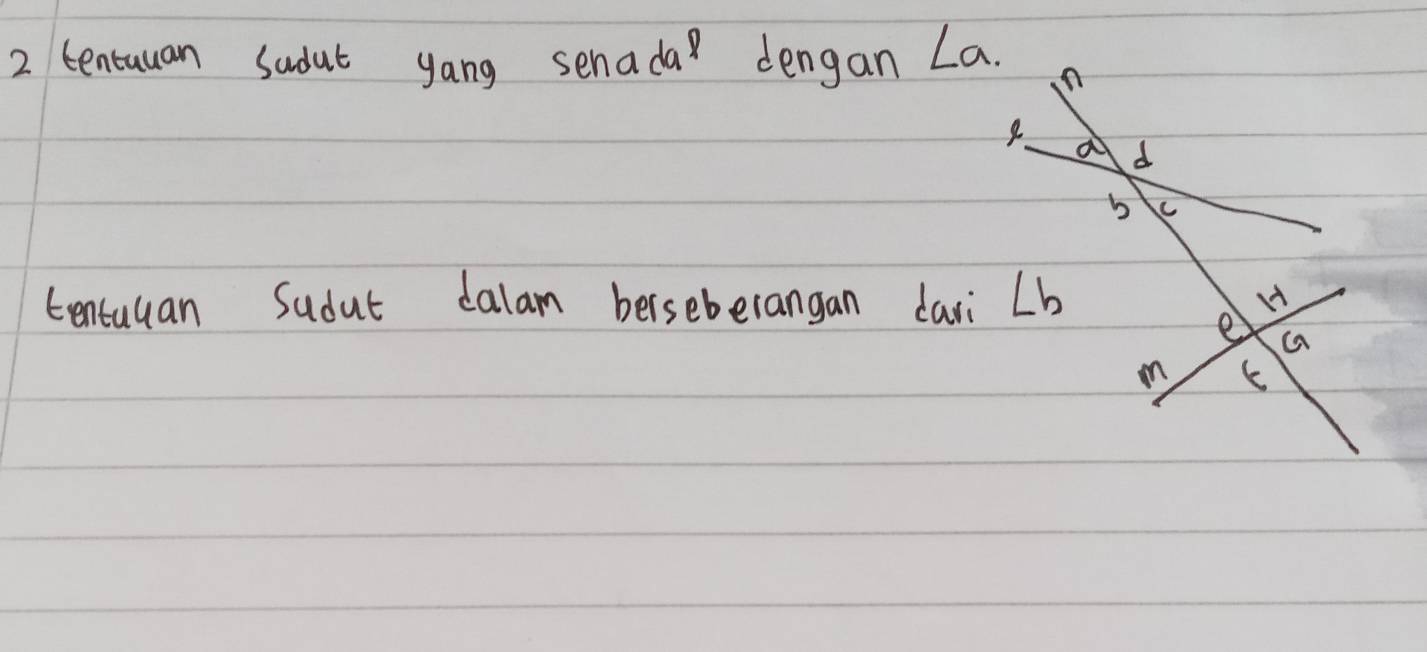 2 tentuuan sudut yang senadap dengan ∠a.
n
l a d
b c
tentuuan sudut dalam berseberangan dari ∠b
H
e G
m t